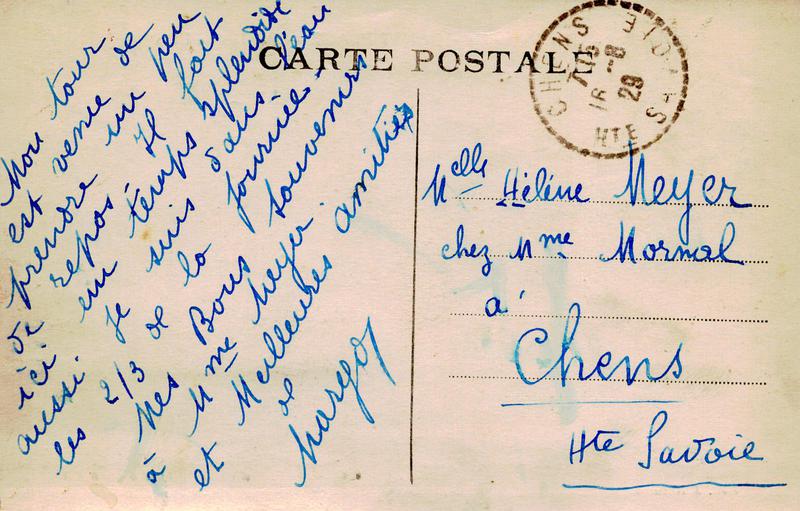 CARTE POSTALE
CHENS HTE SAVOIE
16 -8 29
Mon tour
est venu de
prendre un peu
de repos. Il fait
ici un temps splendide
aussi je suis dans l'eau
les 2/3 de la journée.
Mes Bons souvenirs
à Mme Meyer.
et Meilleures amitiés
de
Margot
Melle Hélène Meyer
chez Mme Mormal
à
Chens
Hte Savoie